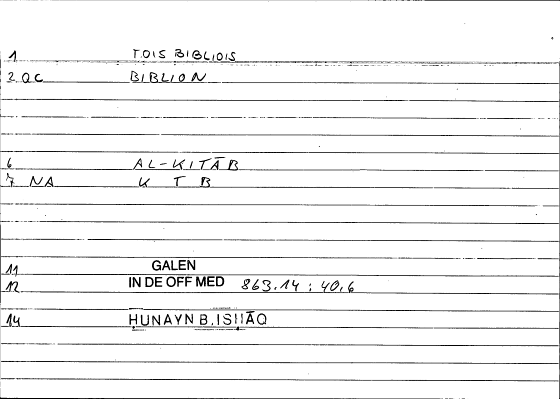 1 TOIS BIBLIOIS
2 QC BIBLION
6 AL-KITĀB
7 NA K T B
11 GALEN
12 IN DE OFF MED 863.14 : 40.6
14 HUNAYN B. ISḤĀQ